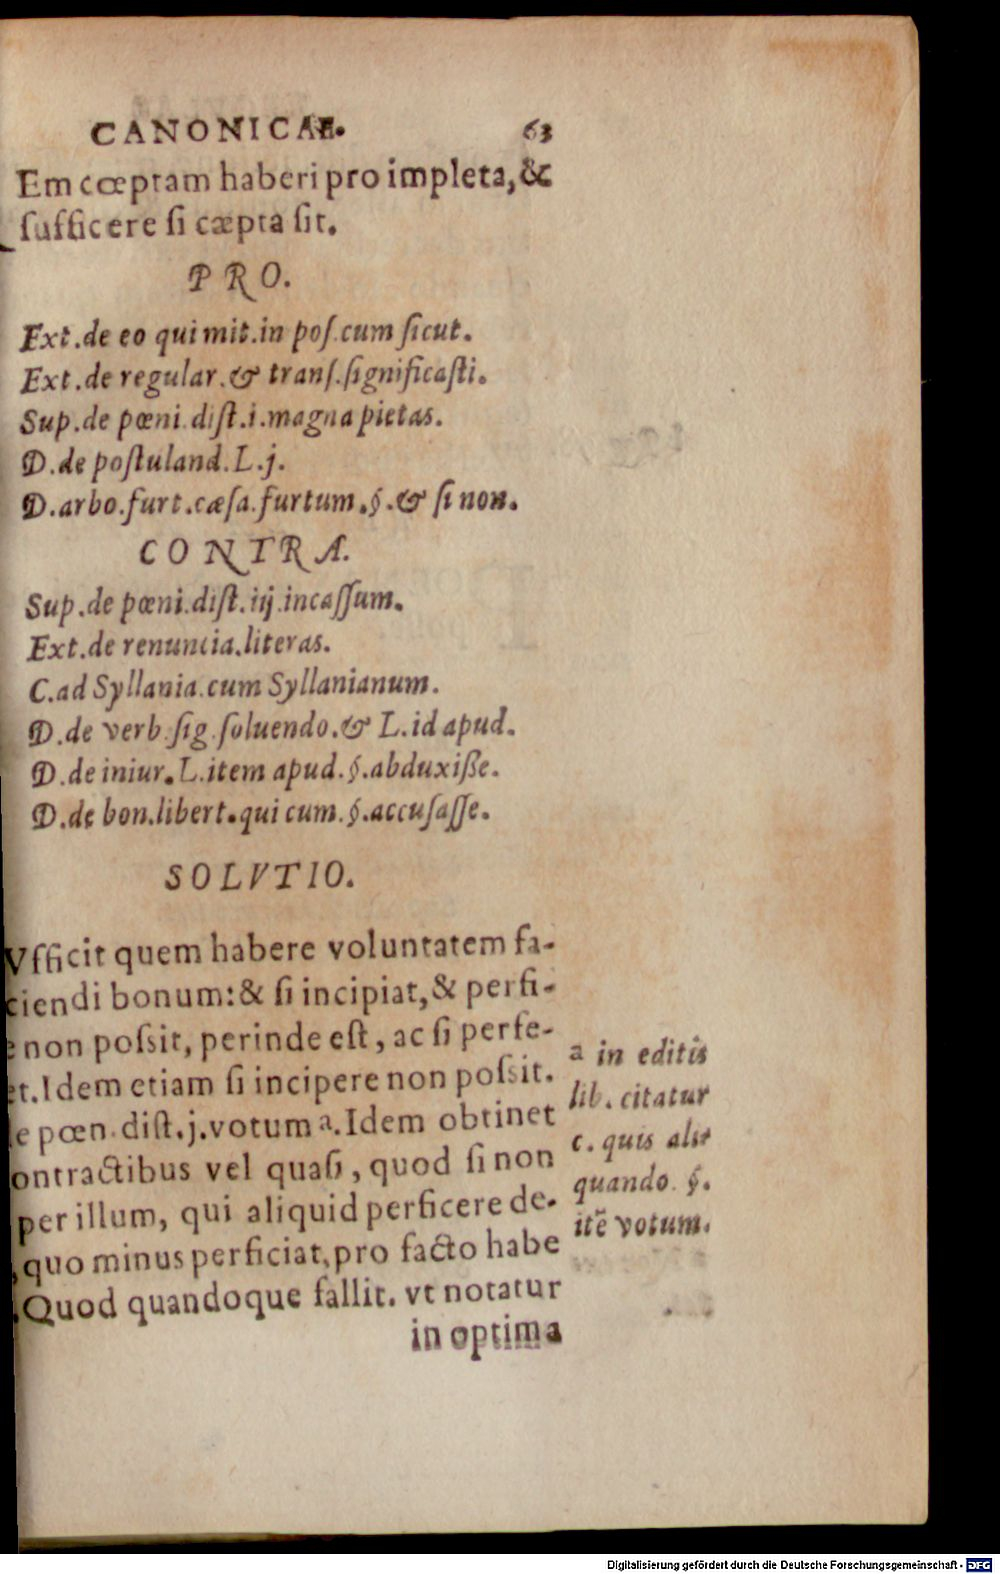 CANONICAE. 63
Em cœptam haberi pro impleta, &
sufficere si cæpta sit.
PRO.
Ext.de eo qui mit.in pos.cum sicut.
Ext.de regular.& trans.significasti.
Sup.de pœni.dist.i.magna pietas.
D.de postuland.L.j.
D.arbo.furt.cæsa.furtum.§.& si non.
CONTRA.
Sup.de pœni.dist.iij.incassum.
Ext.de renuncia.literas.
C.ad Syllania.cum Syllanianum.
D.de verb.sig.soluendo.& L.id apud.
D.de iniur.L.item apud.§.abduxiße.
D.de bon.libert.qui cum.§.accusasse.
SOLVTIO.
Vfficit quem habere voluntatem fa-
ciendi bonum:& si incipiat,& perfi-
e non possit, perinde est, ac si perfe-
et.Idem etiam si incipere non possit.
e pœn.dist.j.votum a.Idem obtinet
ontractibus vel quasi, quod si non
per illum, qui aliquid perficere de-
,quo minus perficiat,pro facto habe
.Quod quandoque fallit. vt notatur
in optima
a in editis
lib. citatur
c. quis alit
quando. §.
itē votum.
Digitalisierung gefördert durch die Deutsche Forschungsgemeinschaft - DFG